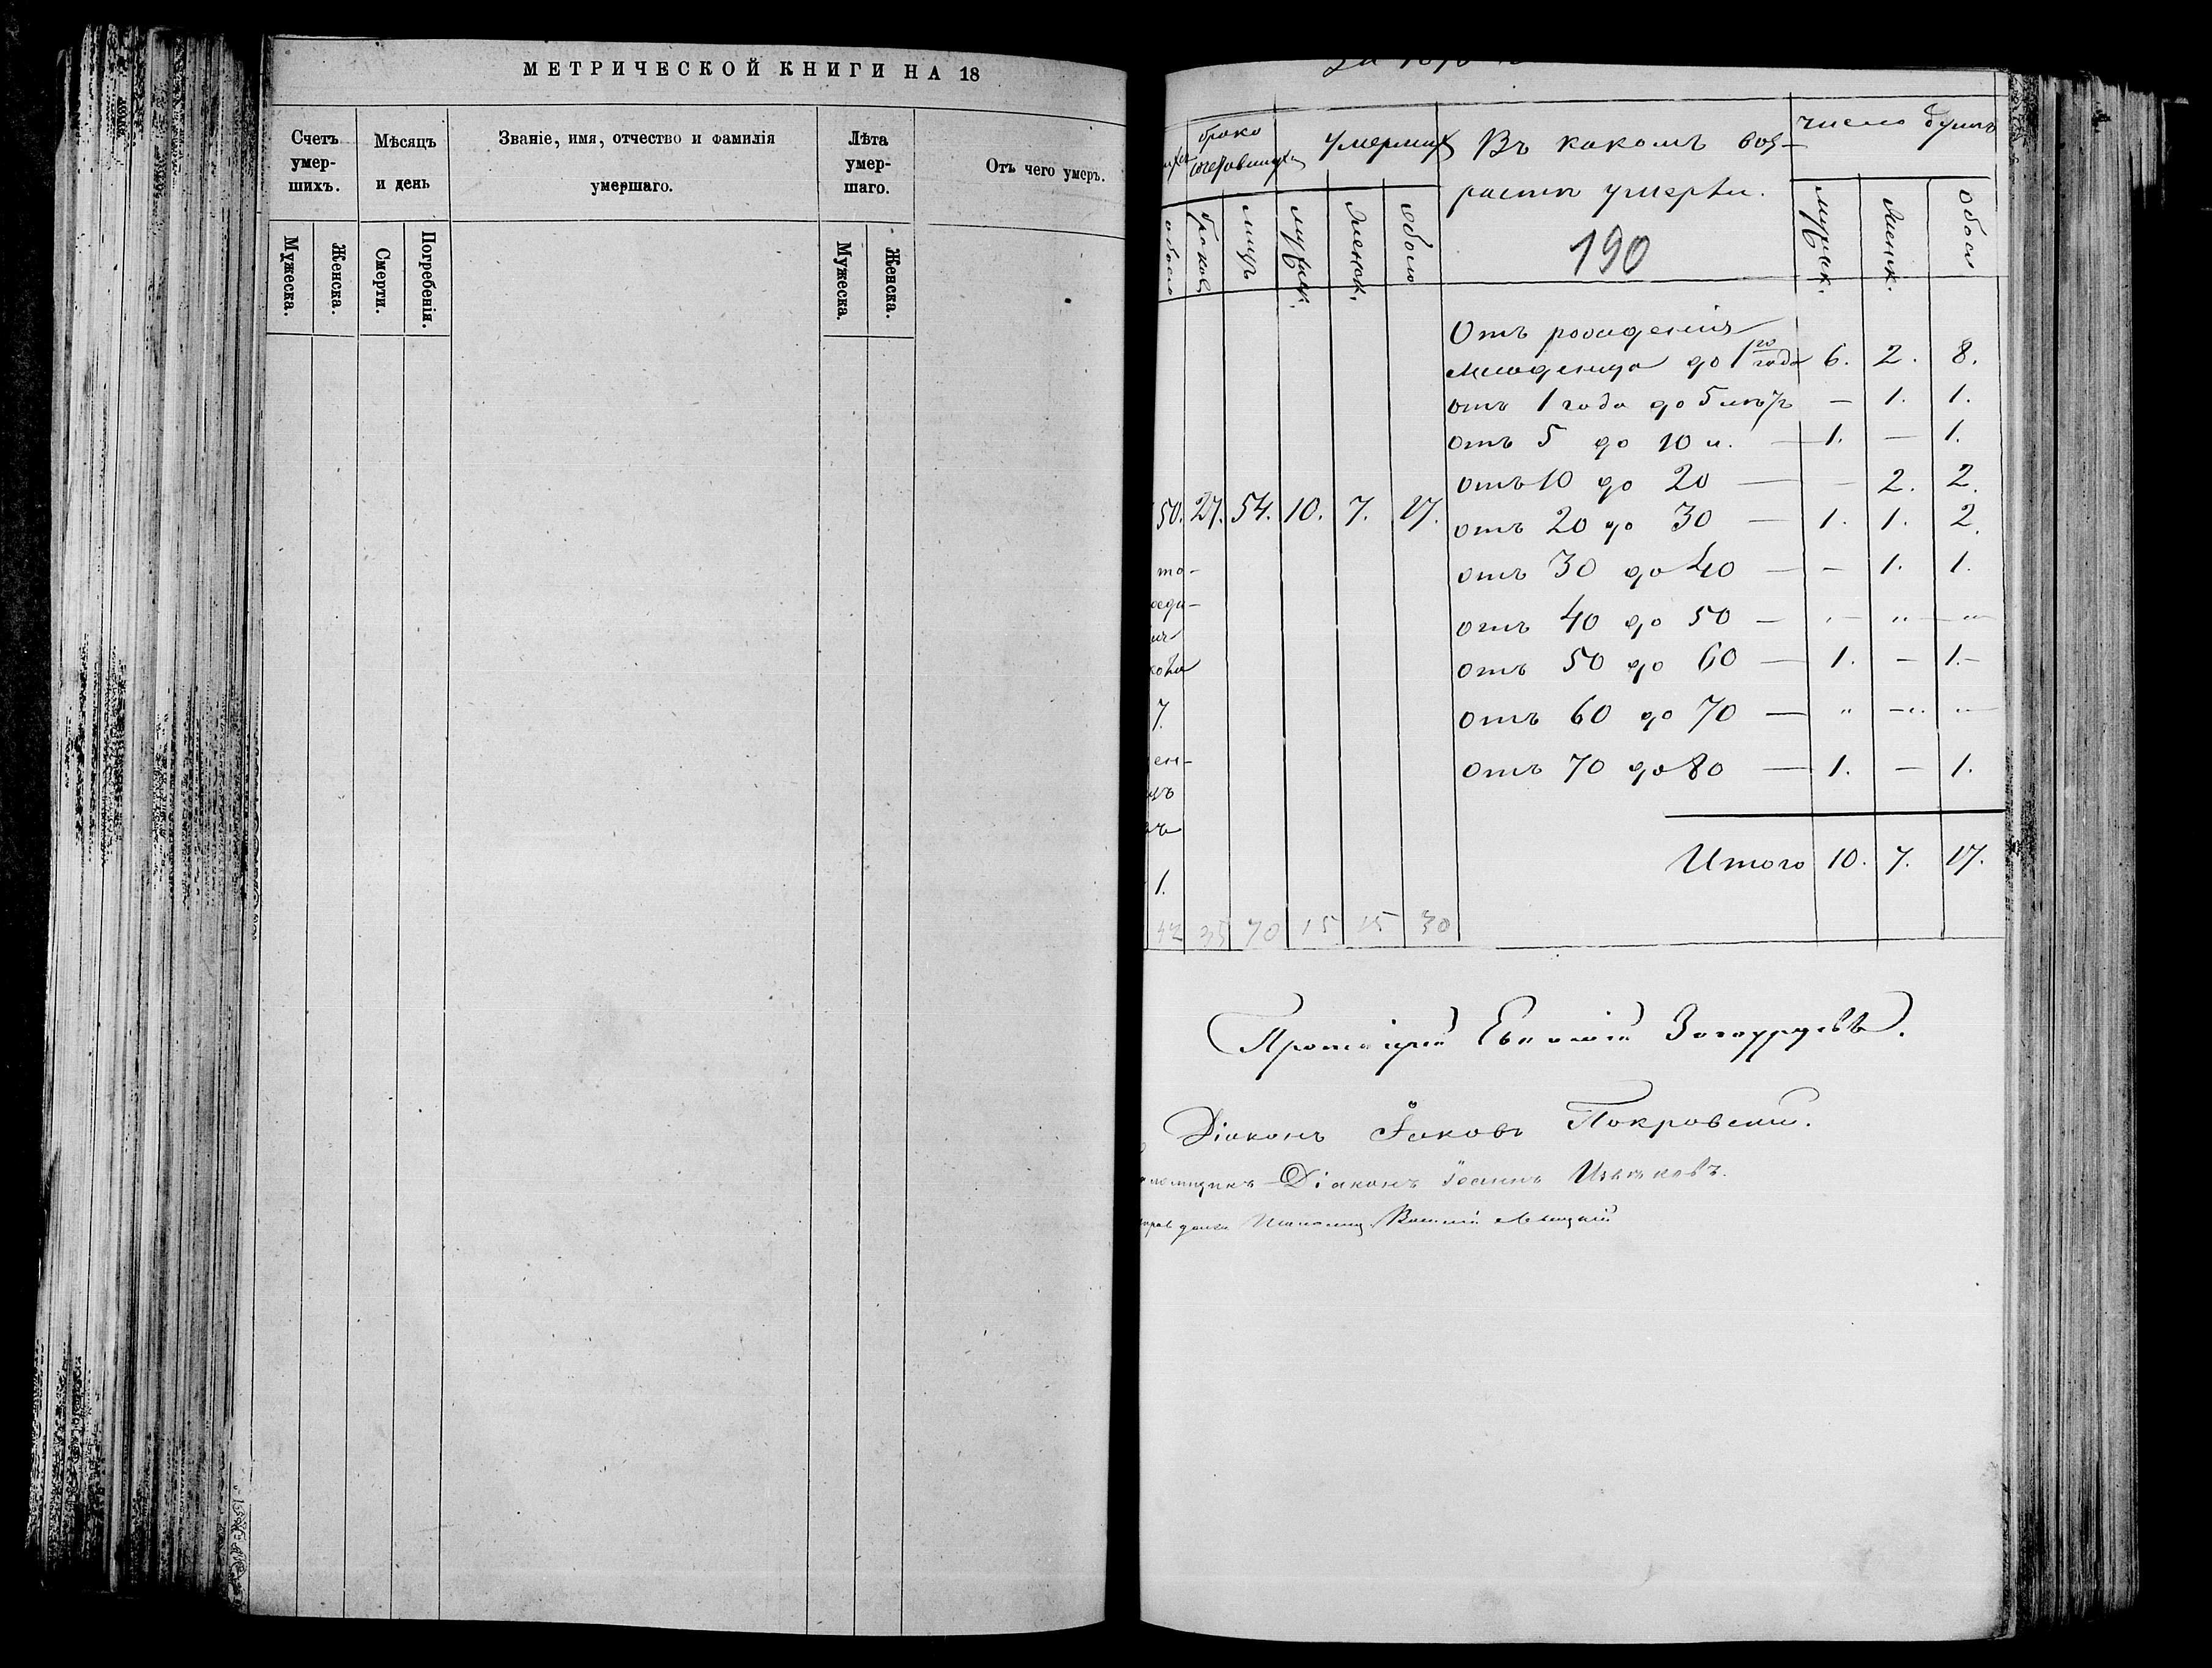 МЕТРИЧЕСКОЙ КНИГИ НА 18
Счетъ умер-
шихъ.
Мѣсяцъ
и день
Званіе, имя, отчество и фамилія
умершаго.
Лѣта
умер-
шаго.
Отъ чего умеръ.
Мужеска.
Женска.
Смерти.
Погребенія.
Мужеска.
Женска.
За
брако
сочетавшихся
умершихъ
Въ какомъ воз-
растѣ умерли.
число душъ
обоего
браков
лицъ
мужск.
женск.
обоего
190
мужск.
женск.
обоего
Отъ рожденія
младенца до 1го года 6. 2. 8.
отъ 1 года до 5 лѣтъ — 1. 1.
отъ 5 до 10 л. — 1. — 1.
отъ 10 до 20 — — 2. 2.
50. 27. 54. 10. 7. 17.
отъ 20 до 30 — 1. 1. 2.
отъ 30 до 40 — — 1. 1.
отъ 40 до 50 —
отъ 50 до 60 — 1. — 1. —
отъ 60 до 70 —
отъ 70 до 80 — 1. — 1.
то-
7.
ен-
1.
Итого 10. 7. 17.
42 35 70 15 15 30
Діаконъ Іаковъ Покровскій.
Діаконъ Іоаннъ